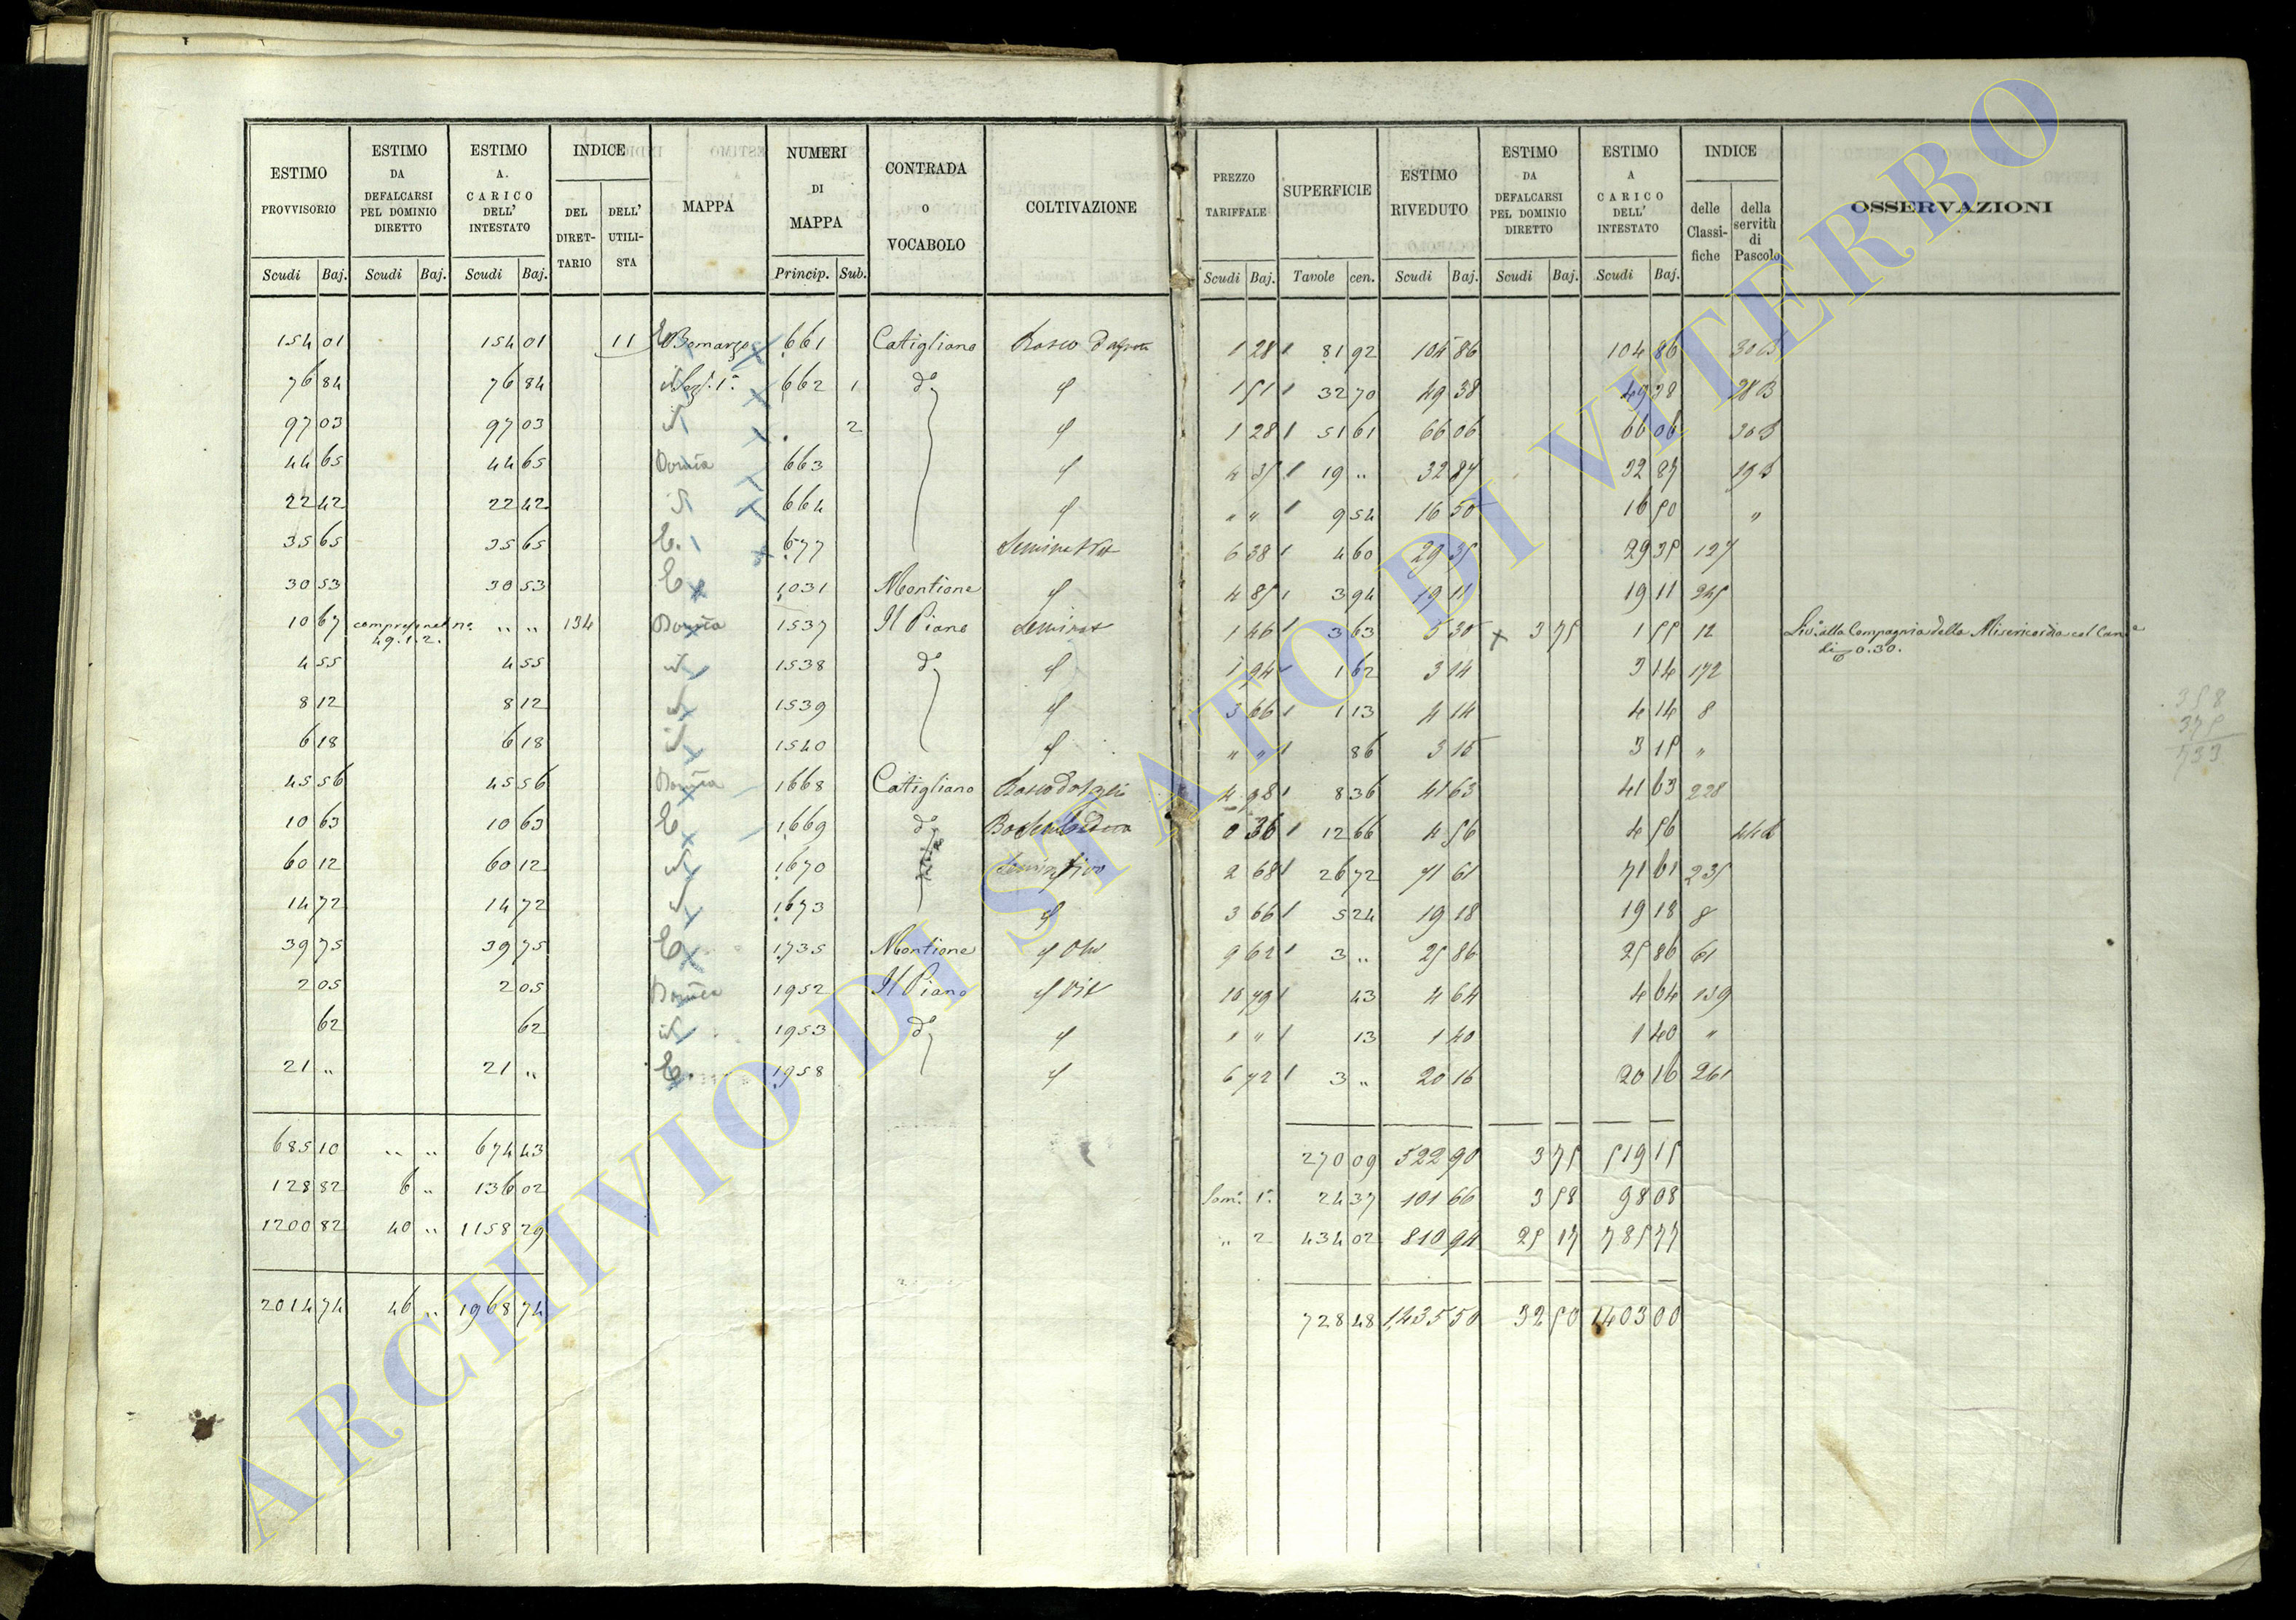 ESTIMO PROVVISORIO | ESTIMO DA DEFALCARSI PEL DOMINIO DIRETTO | ESTIMO A. CARICO DELL' INTESTATO | INDICE DEL DIRET-TARIO | DELL' UTILI-STA | MAPPA | NUMERI DI MAPPA | CONTRADA O VOCABOLO | COLTIVAZIONE | PREZZO TARIFFALE | SUPERFICIE | ESTIMO RIVEDUTO | ESTIMO DA DEFALCARSI PEL DOMINIO DIRETTO | ESTIMO A CARICO DELL' INTESTATO | INDICE delle Classi-fiche | della servitù di Pascolo | OSSERVAZIONI
Scudi Baj. | Scudi Baj. | Scudi Baj. | Princip. Sub. | Scudi Baj. | Tavole cen. | Scudi Baj. | Scudi Baj. | Scudi Baj.
154 01 | 154 01 | 11 | Bomarzo | 661 | Catigliano | Bosco | 1 28 | 81 92 | 104 86 | 104 86 | 30 B
76 84 | 76 84 | Sez. 1ª | 662 1 | do | 1 51 | 32 70 | 49 38 | 49 38 | 28 B
97 03 | 97 03 | 2 | 1 28 | 51 61 | 66 06 | 66 06 | 30 B
44 65 | 44 65 | 663 | 19 „ | 32 87 | 32 87 | 19 B
22 42 | 22 42 | 664 | „ „ | 9 54 | 16 50 | 16 50 | „
35 65 | 35 65 | E. | 677 | 6 38 | 4 60 | 29 35 | 29 35 | 127
30 53 | 30 53 | E | 1031 | Montione | 4 85 | 3 94 | 19 11 | 19 11 | 245
10 67 | compreso nel no. 49.1.2. | „ „ | 134 | 1537 | Il Piano | Seminat | 1 46 | 3 63 | 5 30 | x 3 75 | 1 55 | 12 | Liv.º alla Compagnia della Misericordia col Can.e di 0.30.
4 55 | 4 55 | 1538 | do | 1 94 | 1 62 | 3 14 | 3 14 | 172
8 12 | 8 12 | 1539 | 3 66 | 1 13 | 4 14 | 4 14 | 8
6 18 | 6 18 | 1540 | „ „ | 86 | 3 15 | 3 15 | „
45 56 | 45 56 | 1668 | Catigliano | 4 98 | 8 36 | 41 63 | 41 63 | 228
10 63 | 10 63 | E | 1669 | do | 0 36 | 12 66 | 4 56 | 4 56
60 12 | 60 12 | 1670 | 2 68 | 26 72 | 71 61 | 71 61 | 235
14 72 | 14 72 | 1673 | 3 66 | 5 24 | 19 18 | 19 18 | 8
39 75 | 39 75 | E | 1735 | Montione | 9 62 | 3 „ | 25 86 | 25 86 | 61
2 05 | 2 05 | 1952 | Il Piano | 10 79 | 43 | 4 64 | 4 64 | 139
62 | 62 | 1953 | do | „ „ | 13 | 1 40 | 1 40 | „
21 „ | 21 „ | E. | 1958 | 6 72 | 3 „ | 20 16 | 20 16 | 261
685 10 | „ „ | 674 43 | 270 09 | 522 90 | 3 75 | 519 15
128 82 | 6 „ | 136 02 | Som.ª 1ª | 24 37 | 101 66 | 3 58 | 98 08
1200 82 | 40 „ | 1158 29 | „ 2 | 434 02 | 810 94 | 25 17 | 785 77
2014 74 | 46 „ | 1968 74 | 728 48 | 1435 50 | 32 50 | 1403 00
358
375
733
ARCHIVIO DI STATO DI VITERBO